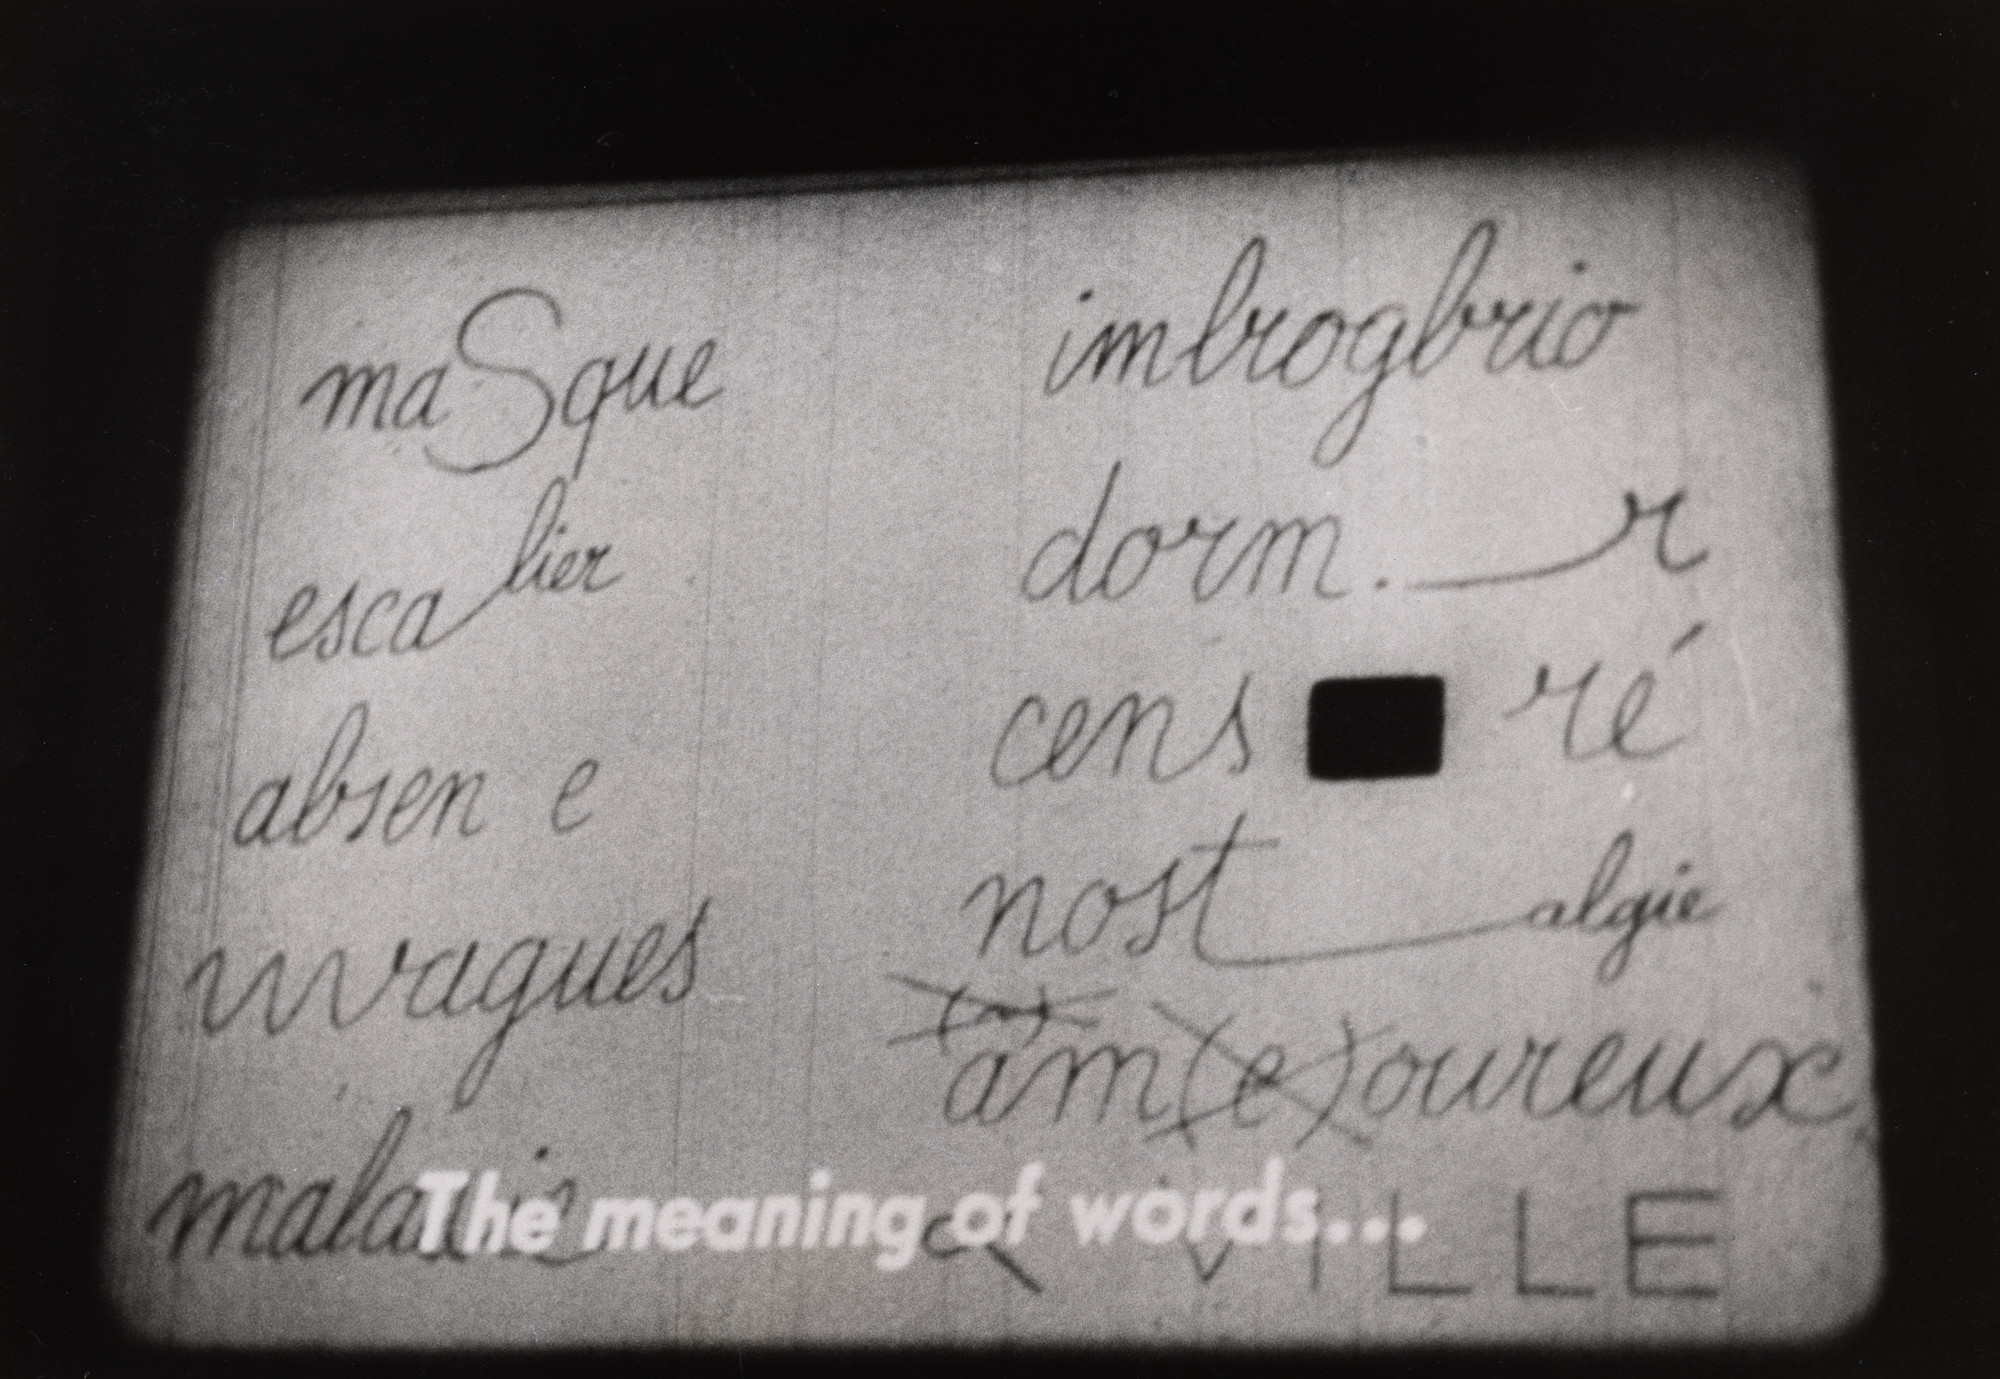 maSque
escalier
absen e
uvvagues
imbrogbrio
dorm._r
cens ■ ré
nost_algie
am(e)oureux
VILLE
The meaning of words...